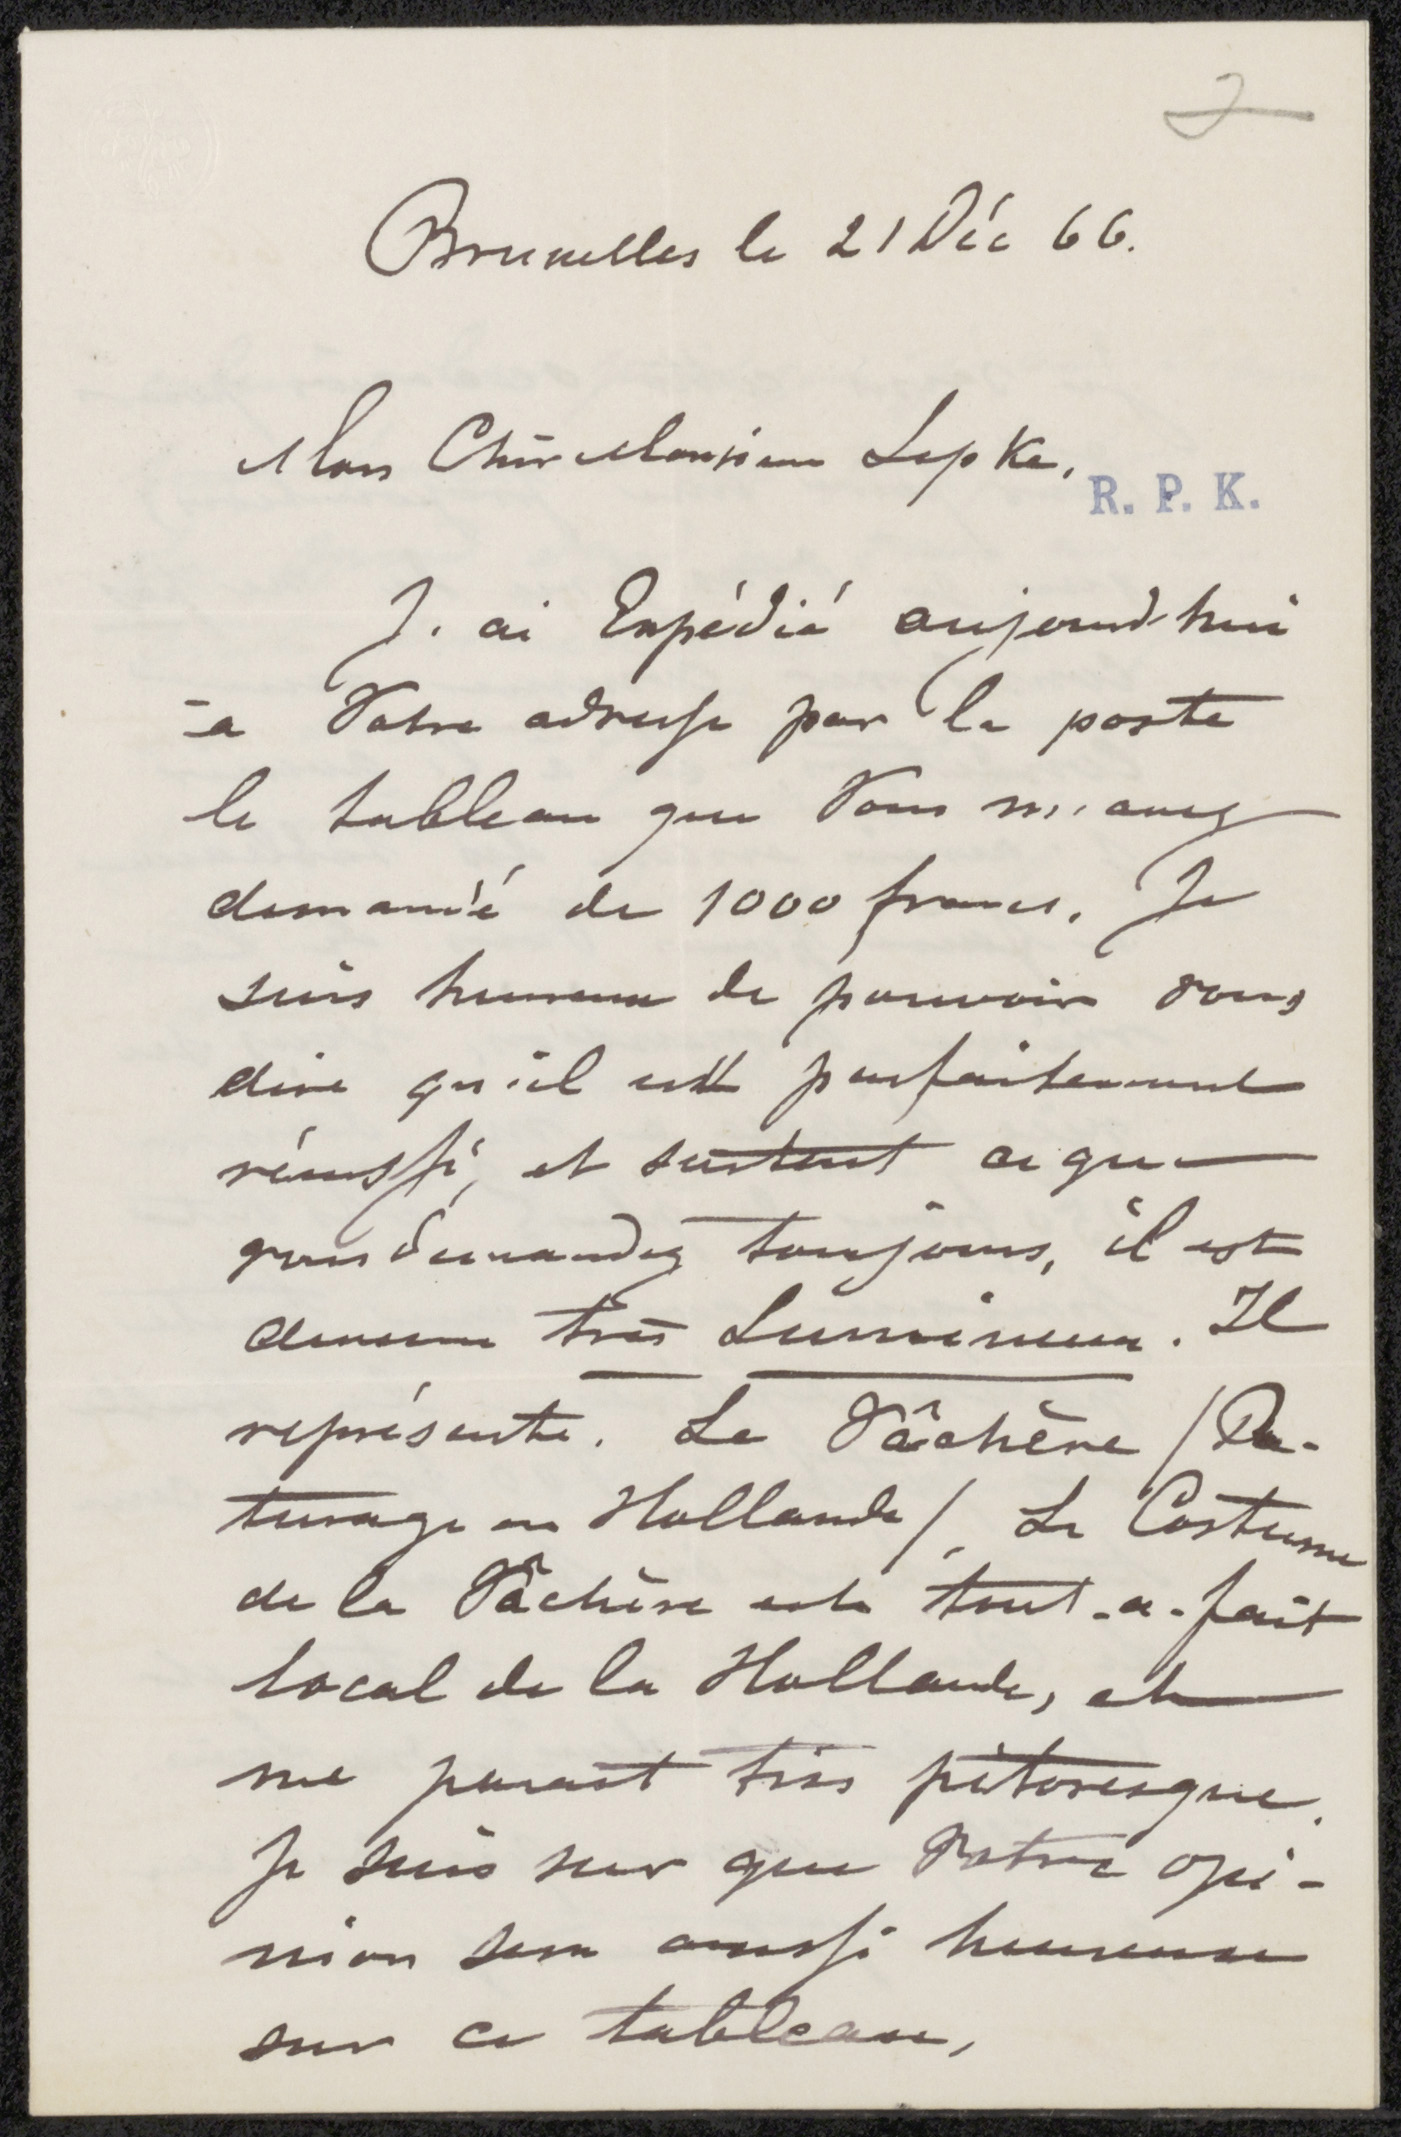 Bruxelles le 21 Déc 66.
Mon Cher Monsieur Lepke,
R. P. K.
J. ai Expédié aujourd'hui
a Votre adresse par la poste
le tableau que Vous m'avez
demandé de 1000 francs. Je
suis heureux de pouvoir vous
dire qu'il est parfaitement
réussi, et surtout ce que
vous demandez toujours, il est
devenu très Lumineux. Il
représente. La Vâchère / Pa-
turage en Hollande /. Le Costume
de la Vâchère est tout-a-fait
local de la Hollande, et
me parait très pittoresque.
Je suis sur que Votre opi-
nion sera aussi heureuse
sur ce tableau,